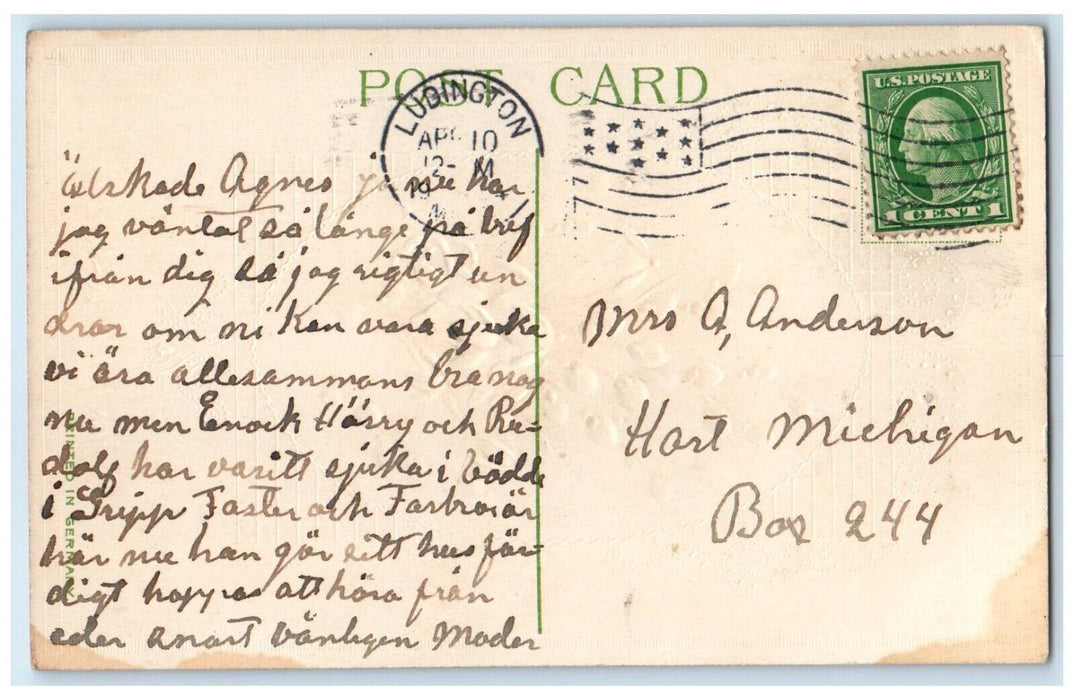 POST CARD
LUDINGTON
APR 10
12- M
19
U.S. POSTAGE
1 CENT 1
Älskade Agnes ja nu har
jag väntat så länge på bref
ifrån dig så jag rigtigt un
drar om ni kan vara sjuka
vi ära allesammans bra nog
nu men Enock Harry och Ru-
dolf har varitt sjuka i bädde
i Gripp Faster och Farbror är
här nu han gör sitt hus fär-
digt hoppas att höra från
eder snart vänligen Moder
Mrs A, Anderson
Hart Michigan
Box 244
PRINTED IN GERMANY